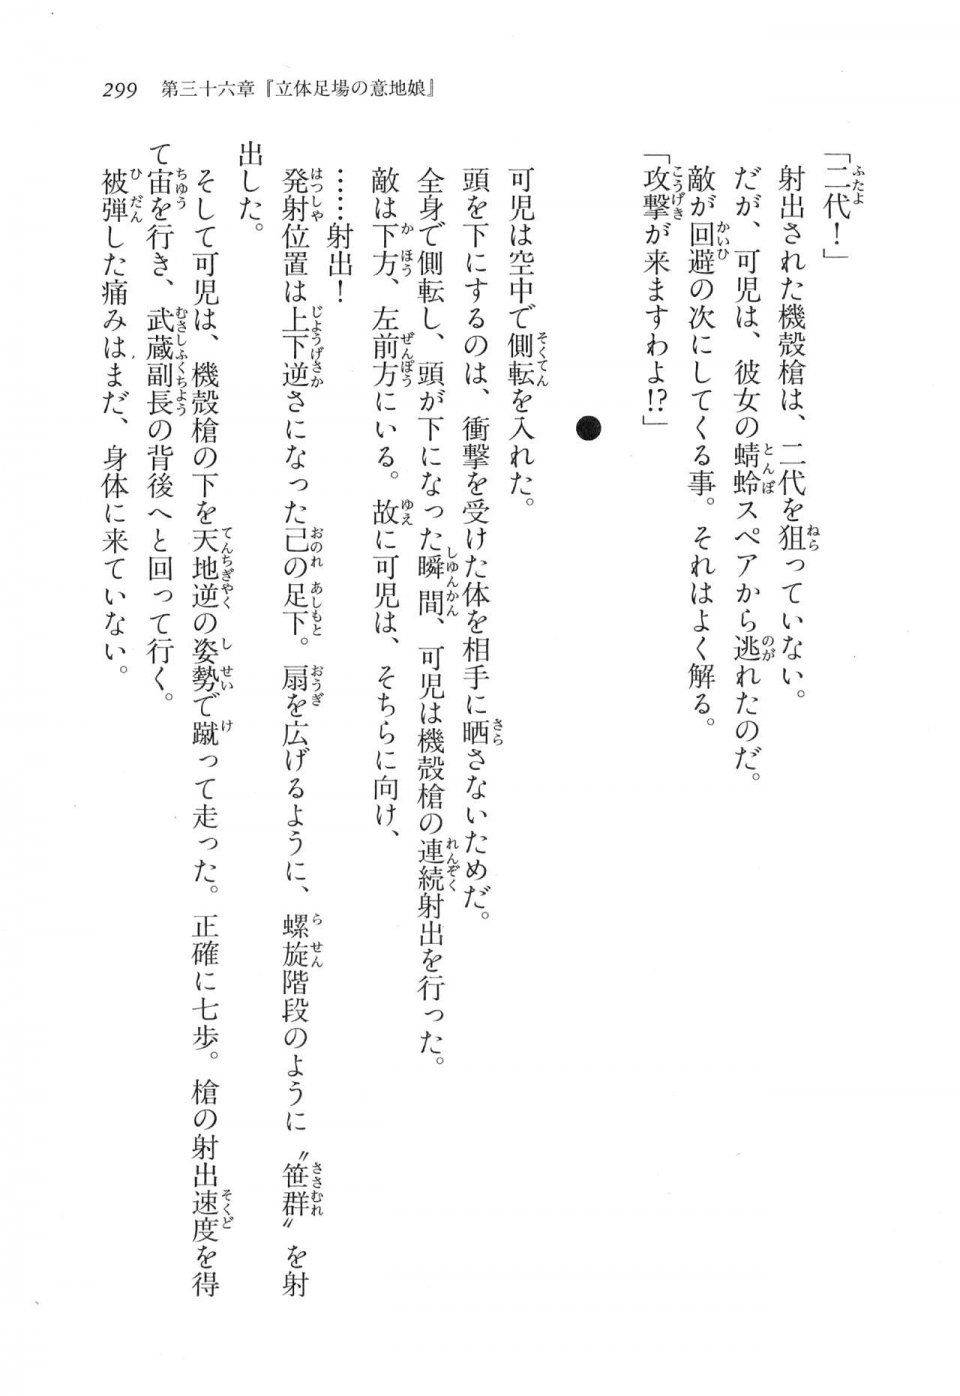 299　第三十六章『立体足場の意地娘』
「二代！」
射出された機殻槍は、二代を狙っていない。
だが、可児は、彼女の蜻蛉スペアから逃れたのだ。
敵が回避の次にしてくる事。それはよく解る。
「攻撃が来ますわよ!?」
●
可児は空中で側転を入れた。
頭を下にするのは、衝撃を受けた体を相手に晒さないためだ。
全身で側転し、頭が下になった瞬間、可児は機殻槍の連続射出を行った。
敵は下方、左前方にいる。故に可児は、そちらに向け、
……射出！
発射位置は上下逆さになった己の足下。扇を広げるように、螺旋階段のように〝笹群〟を射
出した。
そして可児は、機殻槍の下を天地逆の姿勢で蹴って走った。正確に七歩。槍の射出速度を得
て宙を行き、武蔵副長の背後へと回って行く。
被弾した痛みはまだ、身体に来ていない。